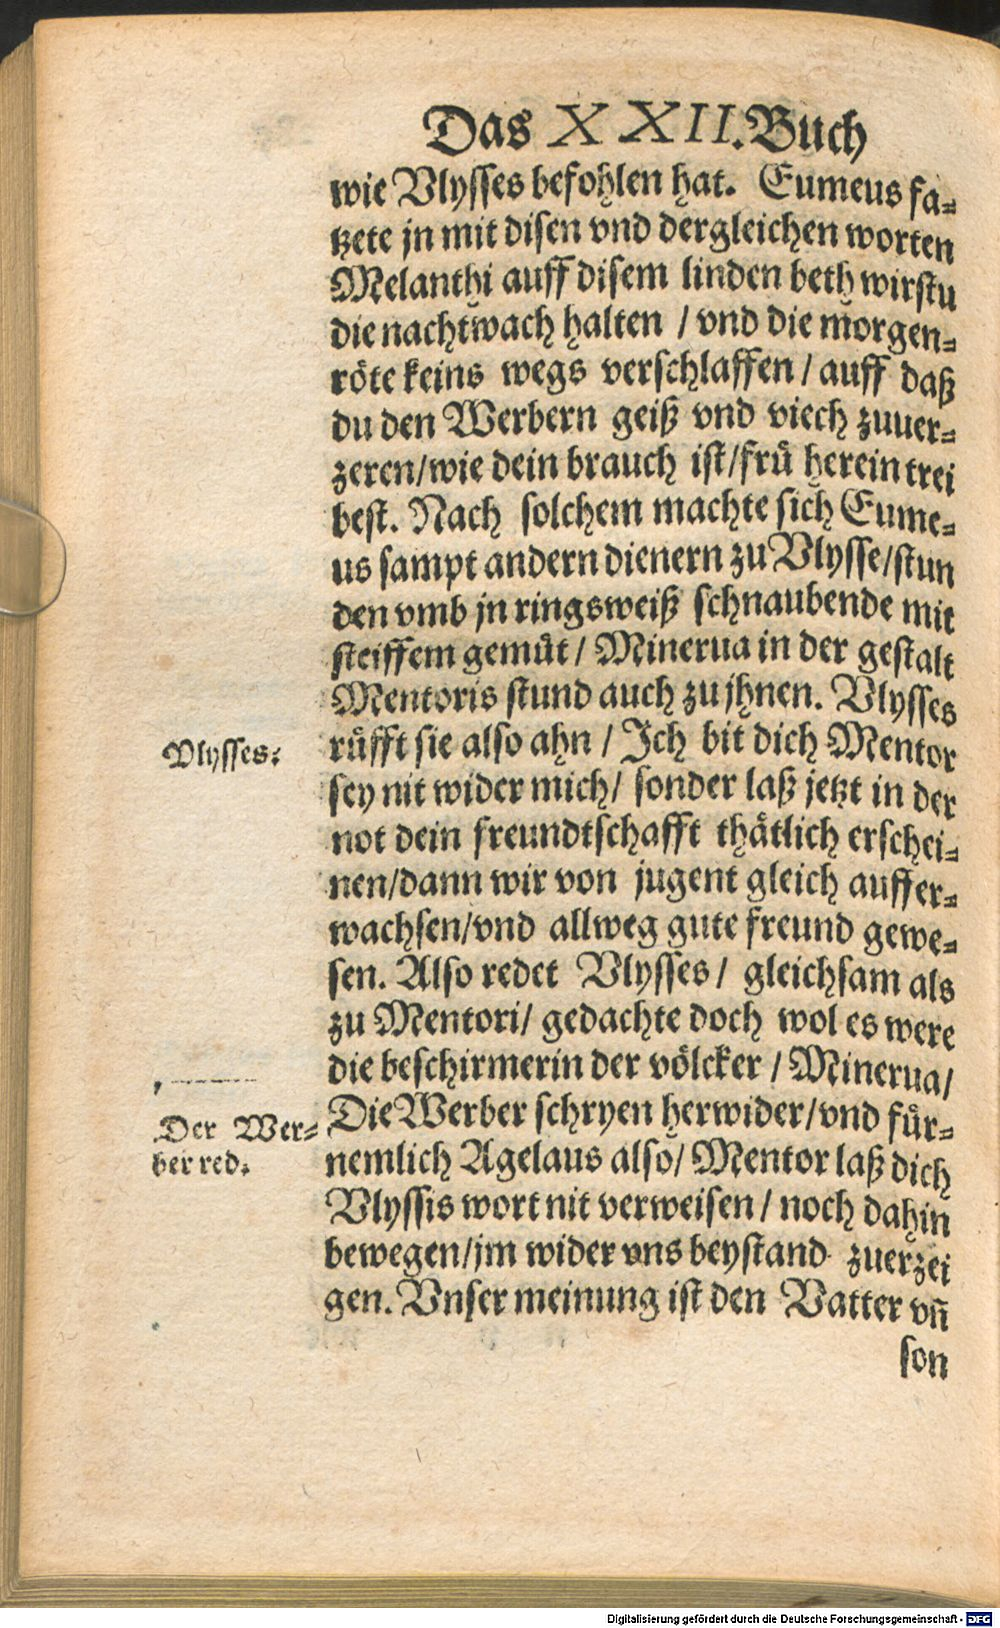 Das XXII. Buch
wie Vlysses befohlen hat. Eumeus fa-
tzete jn mit disen vnd dergleichen worten
Melanthi auff disem linden beth wirstu
die nachtwach halten / vnd die morgen-
röte keins wegs verschlaffen / auff daß
du den Werbern geiß vnd viech zuuer-
zeren/wie dein brauch ist/frü herein trei
best. Nach solchem machte sich Eume-
us sampt andern dienern zu Vlysse/stun
den vmb jn ringsweiß schnaubende mit
steiffem gemüt / Minerua in der gestalt
Mentoris stund auch zu jhnen. Vlysses
Vlysses:
rüfft sie also ahn / Ich bit dich Mentor
sey nit wider mich/ sonder laß jetzt in der
not dein freundtschafft thätlich erschei-
nen/dann wir von jugent gleich auffer-
wachsen/vnd allweg gute freund gewe-
sen. Also redet Vlysses / gleichsam als
zu Mentori/ gedachte doch wol es were
die beschirmerin der völcker / Minerua/
Der Wer-
ber red.
Die Werber schryen herwider/vnd für-
nemlich Agelaus also/ Mentor laß dich
Vlyssis wort nit verweisen / noch dahin
bewegen/jm wider vns beystand zuerzei
gen. Vnser meinung ist den Vatter vñ
son
Digitalisierung gefördert durch die Deutsche Forschungsgemeinschaft - DFG